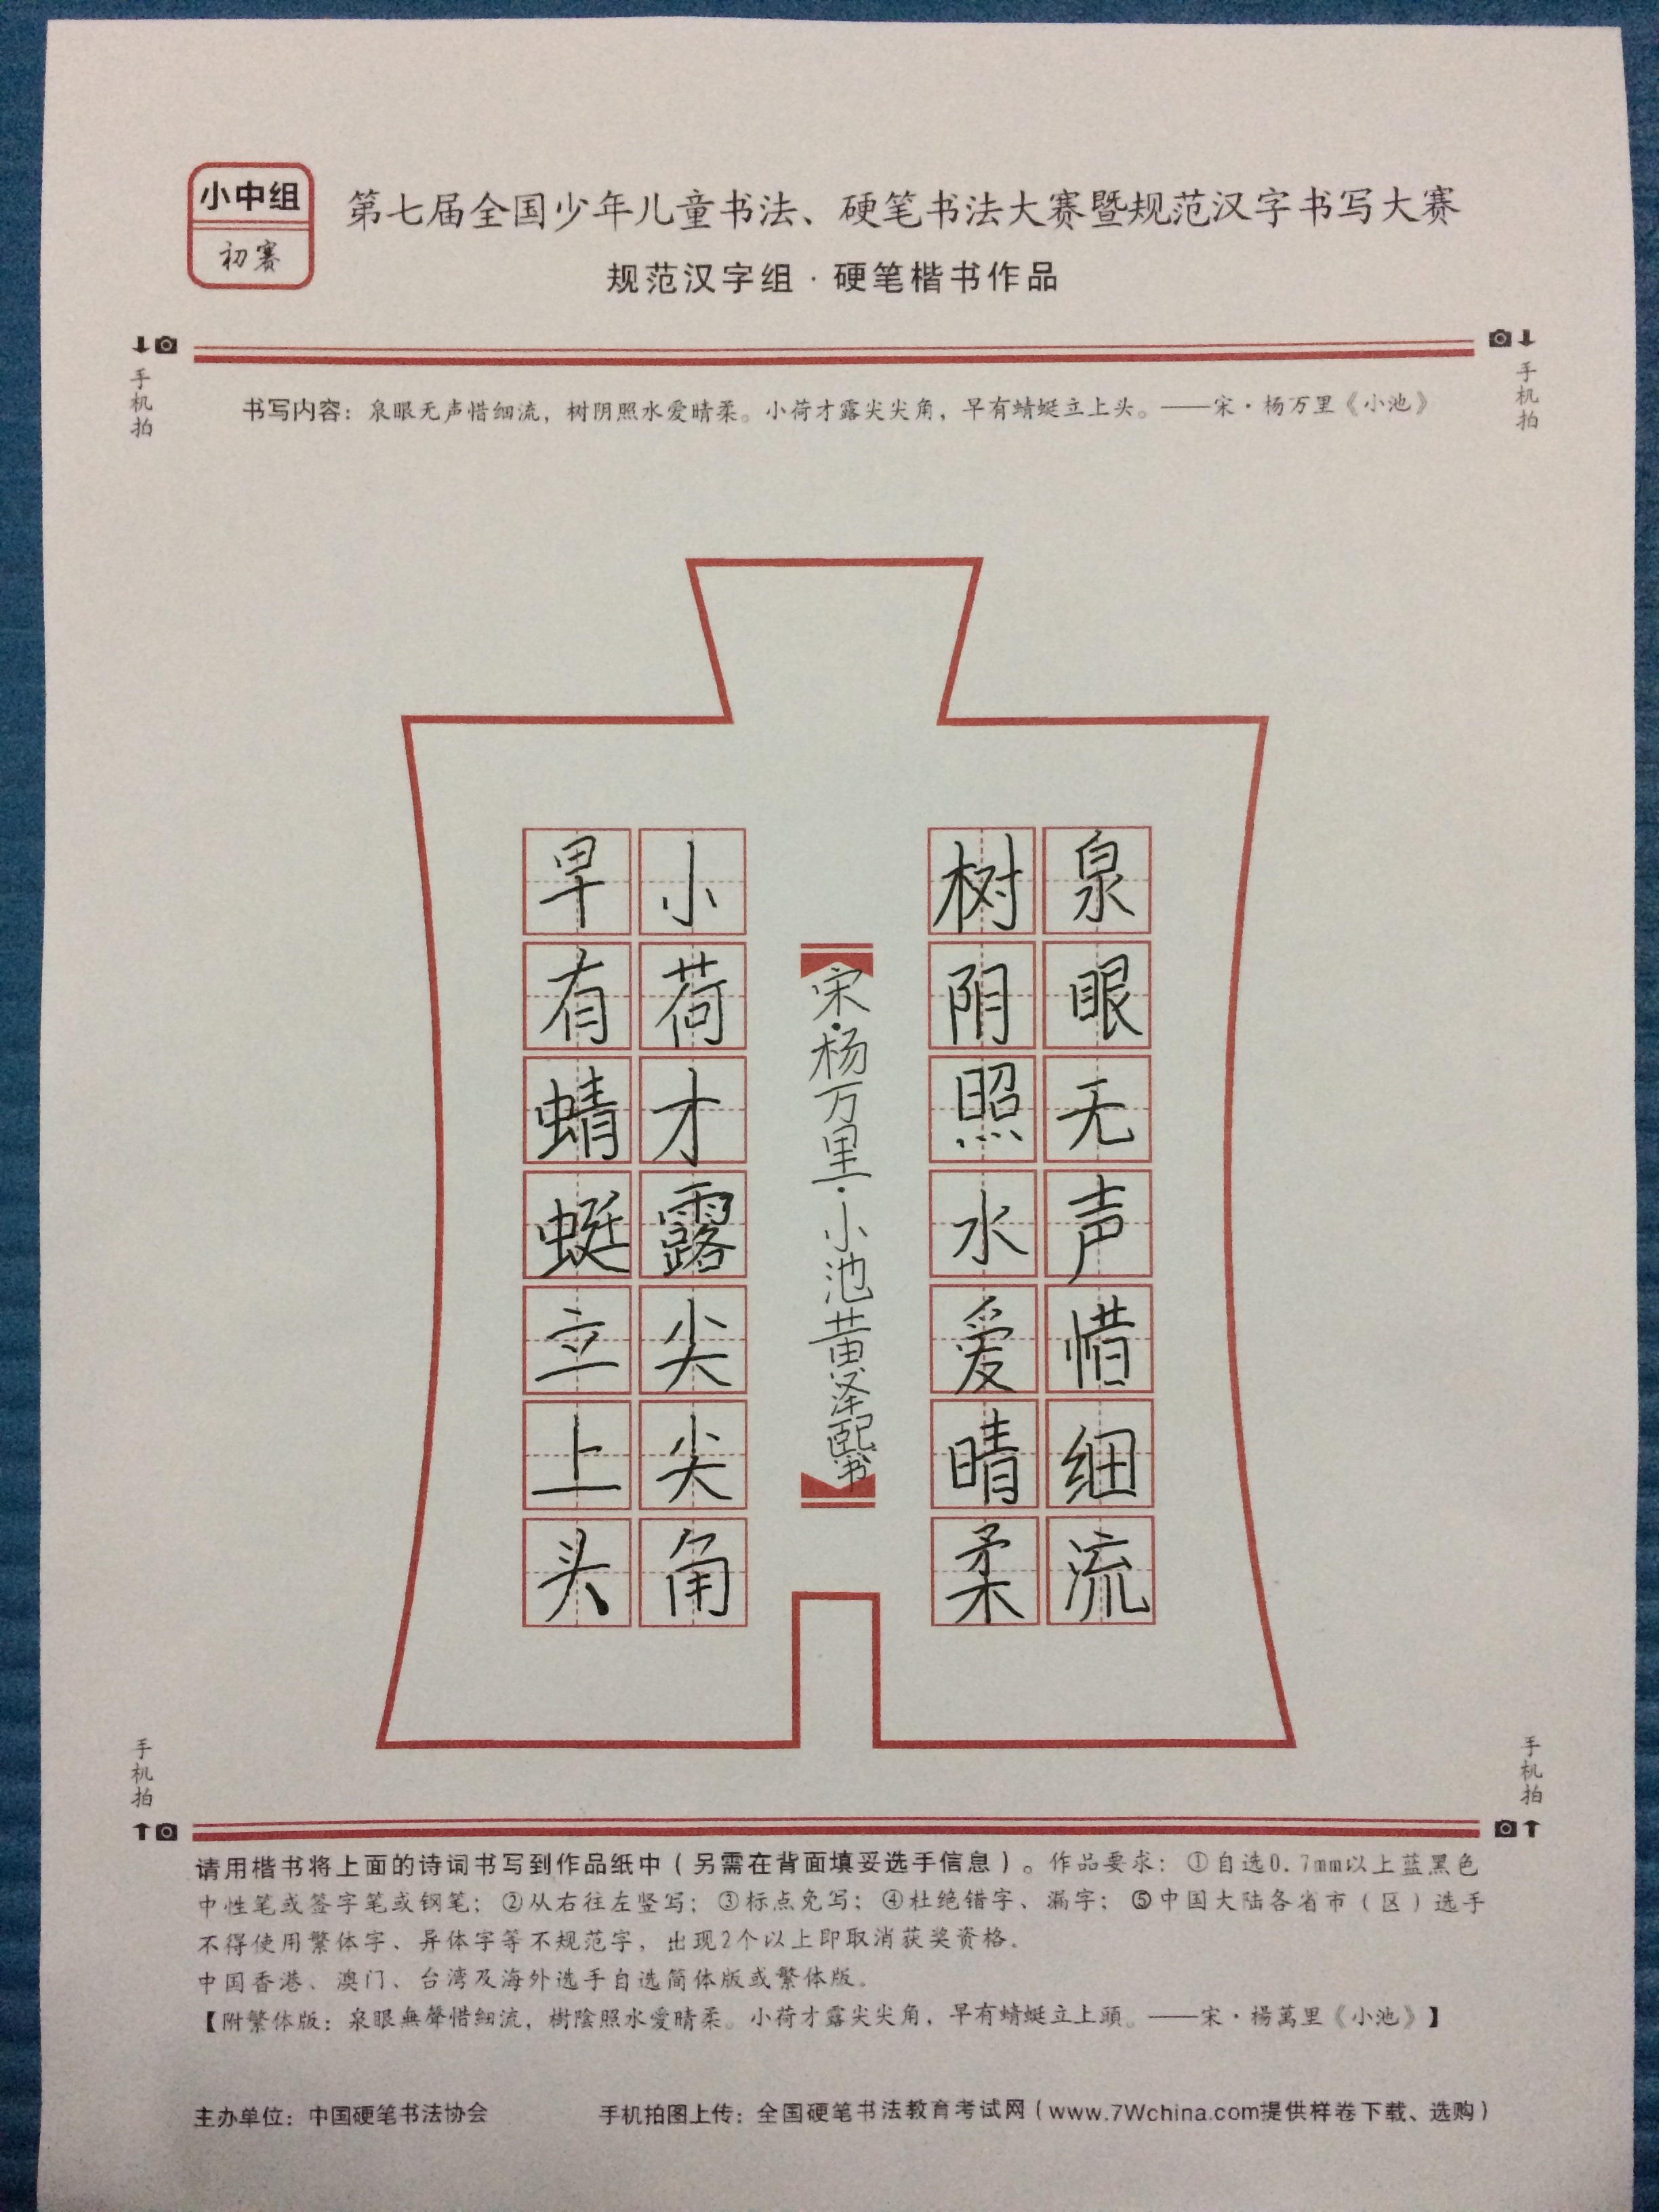 小中组
初赛
第七届全国少年儿童书法、硬笔书法大赛暨规范汉字书写大赛
规范汉字组·硬笔楷书作品
手机拍
手机拍
书写内容：泉眼无声惜细流，树阴照水爱晴柔。小荷才露尖尖角，早有蜻蜓立上头。——宋·杨万里《小池》
泉眼无声惜细流
树阴照水爱晴柔
宋·杨万里·小池黄泽熙书
小荷才露尖尖角
早有蜻蜓立上头
手机拍
手机拍
请用楷书将上面的诗词书写到作品纸中（另需在背面填妥选手信息）。作品要求：①自选0.7mm以上蓝黑色
中性笔或签字笔或钢笔；②从右往左竖写；③标点免写；④杜绝错字、漏字；⑤中国大陆各省市（区）选手
不得使用繁体字、异体字等不规范字，出现2个以上即取消获奖资格。
中国香港、澳门、台湾及海外选手自选简体版或繁体版。
【附繁体版：泉眼無聲惜細流，樹陰照水愛晴柔。小荷才露尖尖角，早有蜻蜓立上頭。——宋·楊萬里《小池》】
主办单位：中国硬笔书法协会
手机拍图上传：全国硬笔书法教育考试网（www.7Wchina.com提供样卷下载、选购）